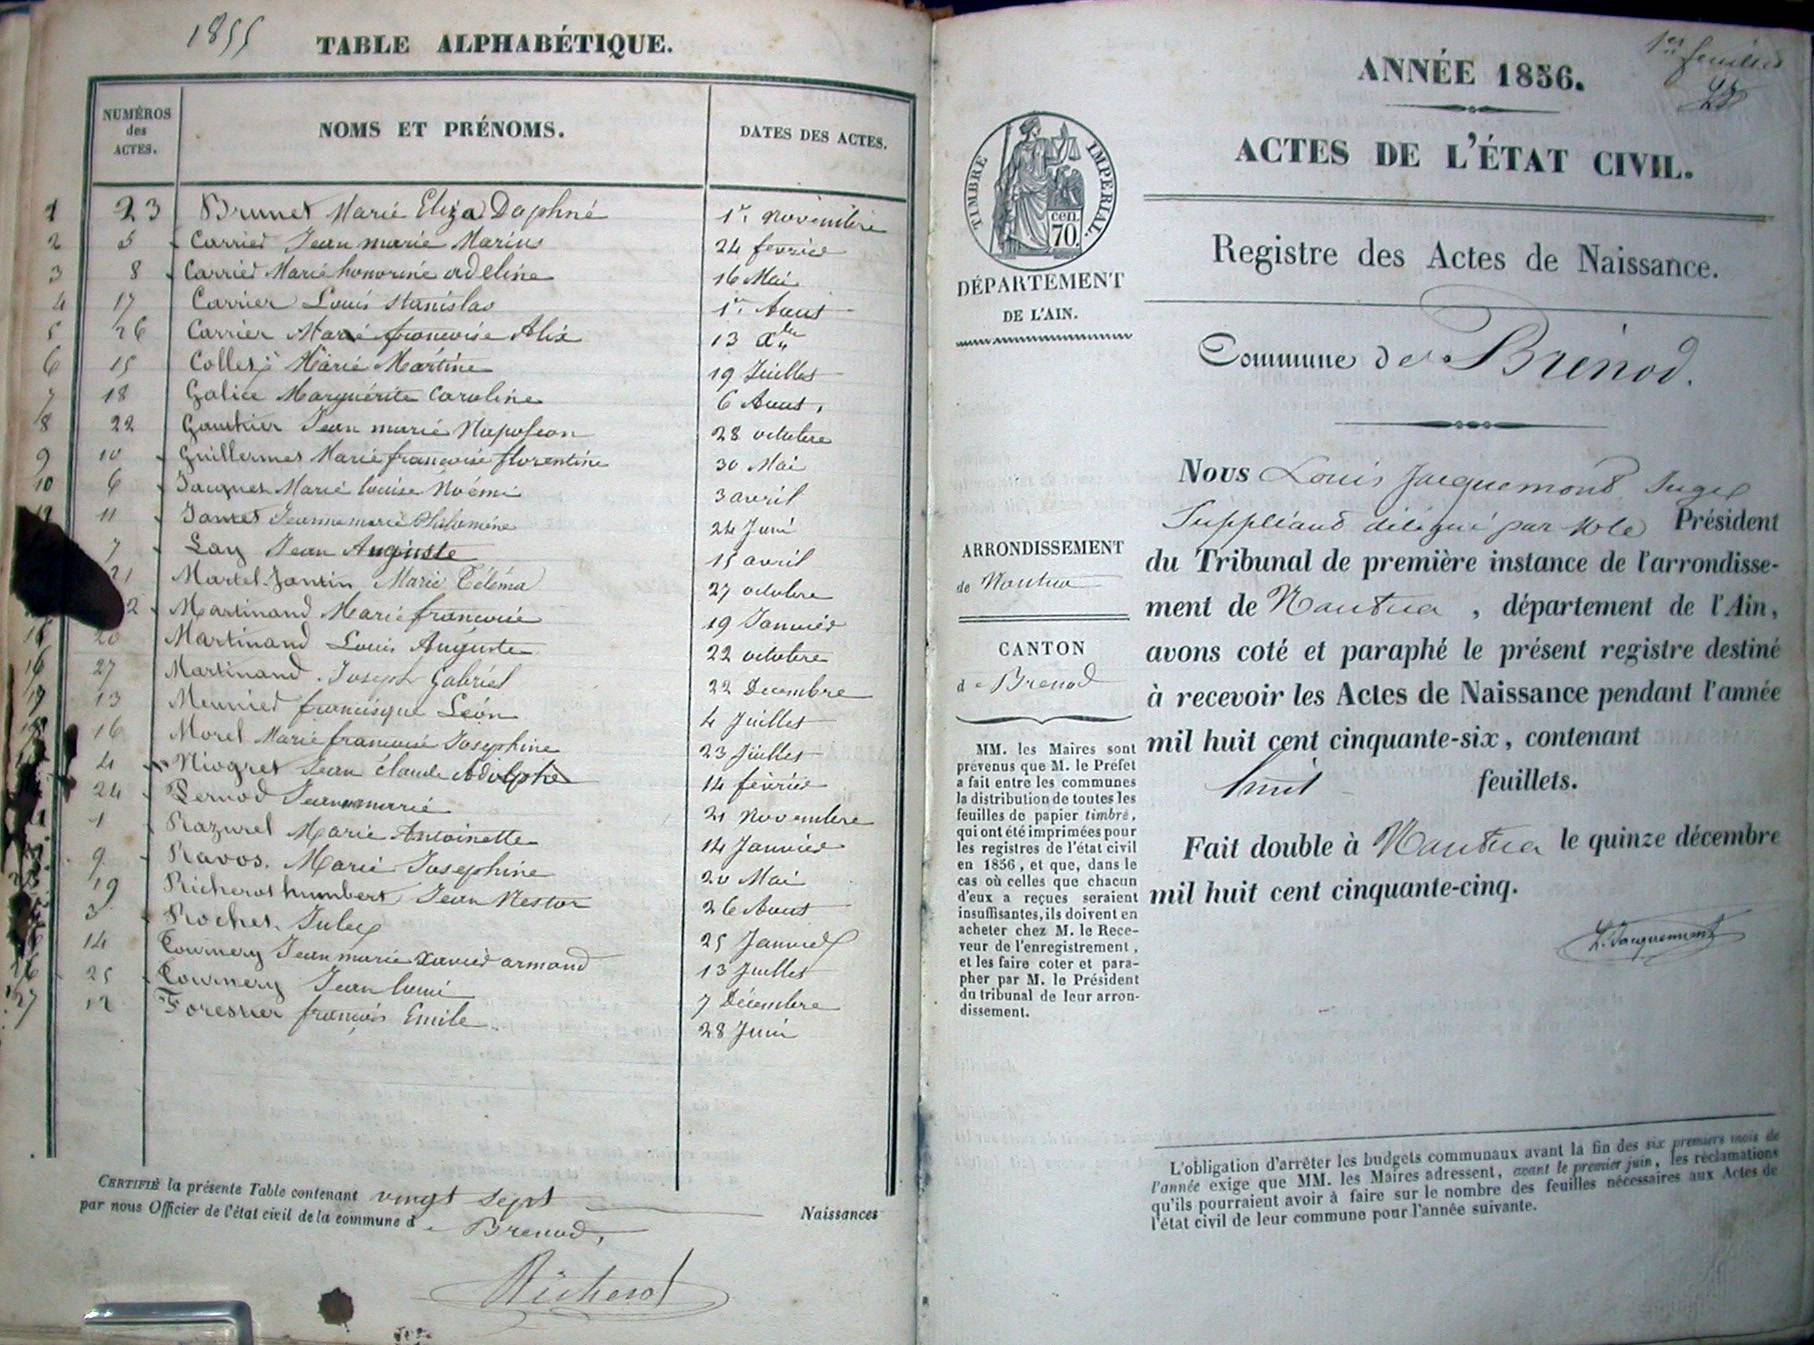 1855
TABLE ALPHABÉTIQUE.
NUMÉROS des ACTES. NOMS ET PRÉNOMS. DATES DES ACTES.
1 23 Brunet Marie Eliza Daphné 1er novembre
2 5 Carrier Jean marie Marius 24 fevrier
3 8 Carrier Marie honorine adeline 16 Mai
4 17 Carrier Louis Stanislas 1er Aout
5 26 Carrier Marie francoise Alix 13 Xbre
6 15 Collet Marie Martine 19 Juillet
7 18 Galice Marguérite Caroline 6 Aout.
8 22 Gauthier Jean marie Napoleon 28 octobre
9 10 Guillermet Marie francoise florentine 30 Mai
10 6 Jacquet Marie louise Noémi 3 avril
11 Jantet Jeanne marie Philomène 24 Juin
7 Lay Jean Auguste 15 avril
21 Martel Jantin Marie Téléma 27 octobre
2 Martinand Marie francoise 19 Janvier
20 Martinand Louis Auguste 22 octobre
16 27 Martinand Joseph Gabriel 22 Decembre
13 Meunier francisque Léon 4 Juillet
16 Morel Marie francoise Josephine 23 Juillet
4 Niogret Jean Claude Adolphe 14 février
24 Pernod Jean marie 21 Novembre
1 Razurel Marie Antoinette 14 Janvier
9 Ravot. Marie Josephine 20 Mai
19 Richerot humbert Jean Nestor 26 Aout
3 Rochet. Jules 25 Janvier
14 Tournery Jean marie xavier armand 13 Juillet
26 25 Tournery Jean 7 Décembre
27 12 Forestier françois Emile 28 Juin
CERTIFIÉ la présente Table contenant vingt sept Naissances
par nous Officier de l'état civil de la commune de Brenod.
Richerot
1er feuillet
ANNÉE 1856.
ACTES DE L'ÉTAT CIVIL.
TIMBRE IMPÉRIAL.
cen. 70.
DÉPARTEMENT
DE L'AIN.
Registre des Actes de Naissance.
Commune de Brénod.
Nous Louis Jacquemont Juge
Suppléant délégué par Mr le Président
du Tribunal de première instance de l'arrondisse-
ment de Nantua, département de l'Ain,
avons coté et paraphé le présent registre destiné
à recevoir les Actes de Naissance pendant l'année
mil huit cent cinquante-six, contenant
huit feuillets.
Fait double à Nantua le quinze décembre
mil huit cent cinquante-cinq.
L. Jacquemont
ARRONDISSEMENT
de Nantua
CANTON
de Brenod
MM. les Maires sont
prévenus que M. le Préfet
a fait entre les communes
la distribution de toutes les
feuilles de papier timbré,
qui ont été imprimées pour
les registres de l'état civil
en 1856, et que, dans le
cas où celles que chacun
d'eux a reçues seraient
insuffisantes, ils doivent en
acheter chez M. le Rece-
veur de l'enregistrement,
et les faire coter et para-
pher par M. le Président
du tribunal de leur arron-
dissement.
L'obligation d'arrêter les budgets communaux avant la fin des six premiers mois de
l'année exige que MM. les Maires adressent, avant le premier juin, les réclamations
qu'ils pourraient avoir à faire sur le nombre des feuilles nécessaires aux Actes de
l'état civil de leur commune pour l'année suivante.